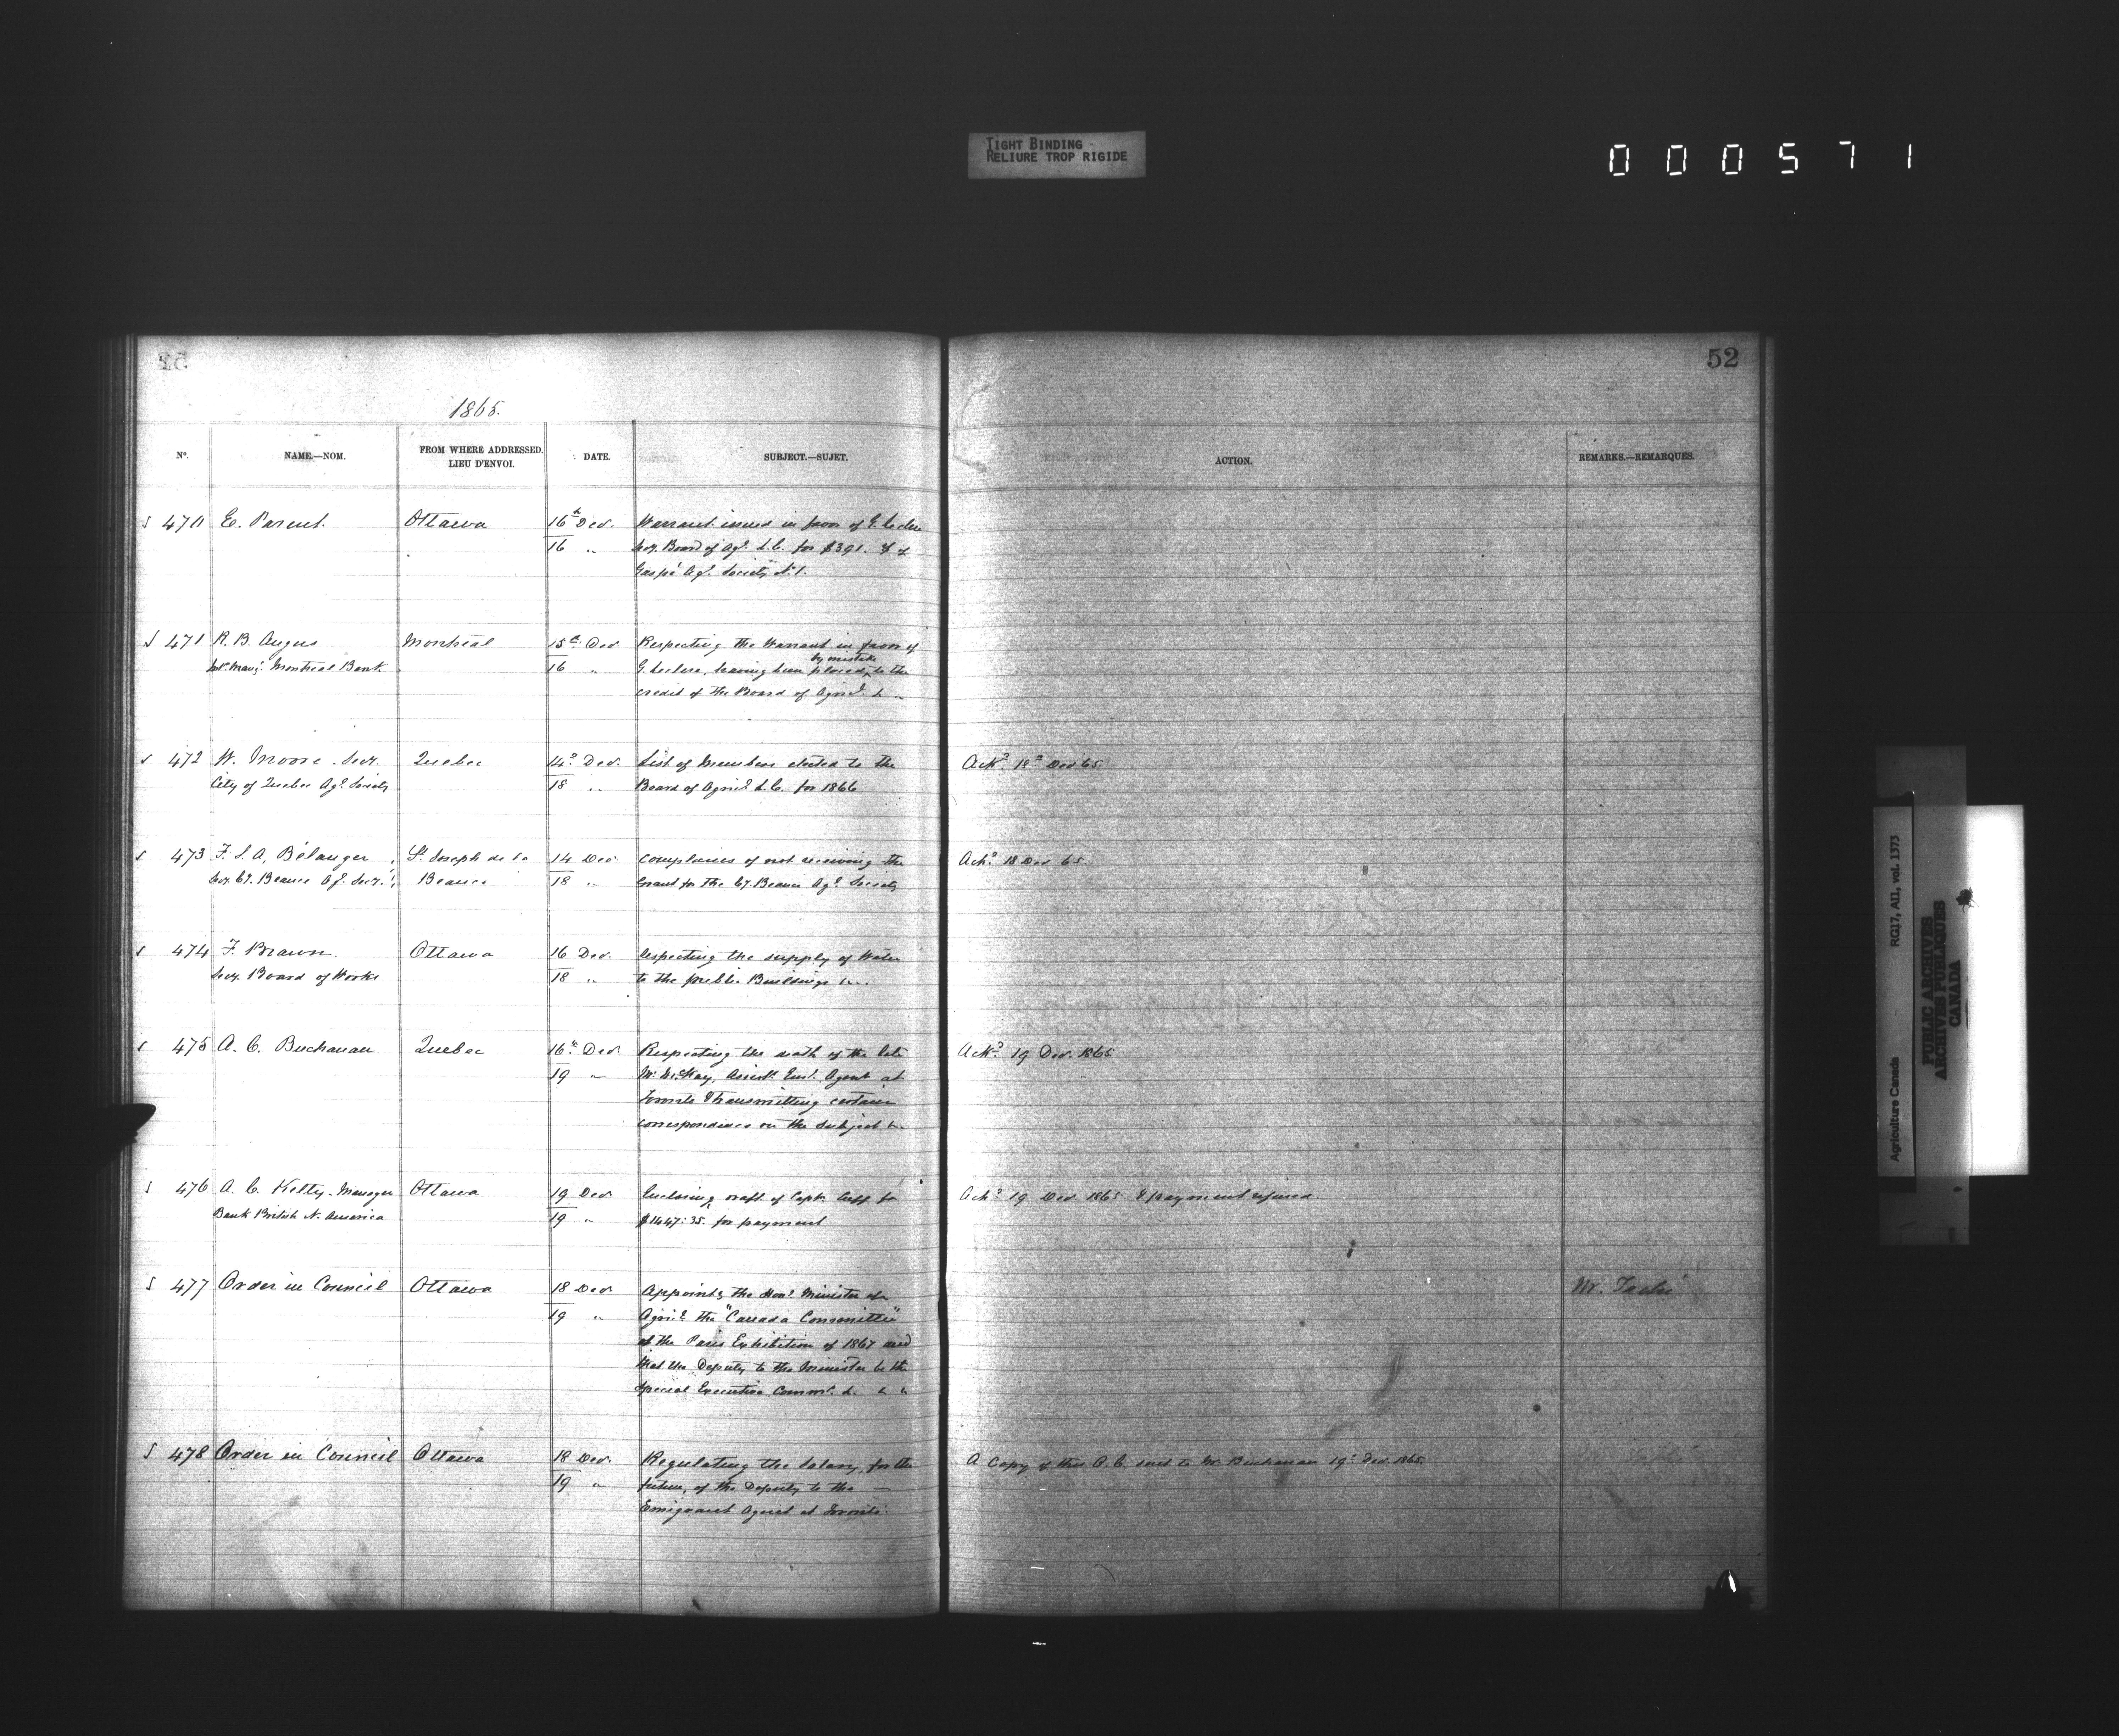 TIGHT BINDING
RELIURE TROP RIGIDE
000571
52
1865.
Nº. NAME.—NOM. FROM WHERE ADDRESSED. LIEU D'ENVOI. DATE. SUBJECT.—SUJET. ACTION. REMARKS.—REMARQUES.
470 E. Parent. Ottawa 16th Dec. Warrant issued in favor of G. Leclere
16 " Secy. Board of Agl. L.C. for $391.
Gaspé Agl. Society No 1.
471 R. B. Angus Montreal 15th Dec Respecting the Warrant in favor of
Montreal Bank 16 " G. Leclere, having been placed by mistake to the
credit of the Board of Agricl. &c
472 W. Moore Secy. Quebec 14th Dec. List of Members elected to the Ackd 18th Dec 65.
City of Quebec Agl. Society 18 " Board of Agricl. L.C. for 1866
473 F. L. A. Bélanger St. Joseph de la 14 Dec. Complains of not receiving the Ackd. 18 Dec 65.
Secy. Cy. Beauce Ag. Socy. Beauce 18 " Grant for the Cy. Beauce Agl. Society
474 F. Braun Ottawa 16 Dec. Respecting the supply of Water
Secy. Board of Works 18 " to the public Buildings &c.
475 A. C. Buchanan Quebec 16th Dec. Respecting the death of the late Ackd 19 Dec. 1865
19 " Mr. McKay, Assistt. Emt. Agent at
Toronto & transmitting certain
correspondence on the subject &c.
476 A. C. Kelty - Manager Ottawa 19 Dec Enclosing draft of Capt. for Ackd 19 Dec 1865 & payment refused
Bank British N. America 19 " $1447:35. for payment
477 Order in Council Ottawa 18 Dec. Appointg the Honl. Minister of Mr. Taché
19 " Agricl. the "Canada Committee"
of the Paris Exhibition of 1867 and
that the Deputy to the Minister be the
Special Executive Commr. &c. &c
478 Order in Council Ottawa 18 Dec. Regulating the Salary, for the A Copy of this O. C. sent to Mr. Buchanan 19th Dec. 1865.
19 " future, of the Deputy to the —
Emigrant Agent at Toronto.
Agriculture Canada RG17, AII, vol. 1373
PUBLIC ARCHIVES
ARCHIVES PUBLIQUES
CANADA